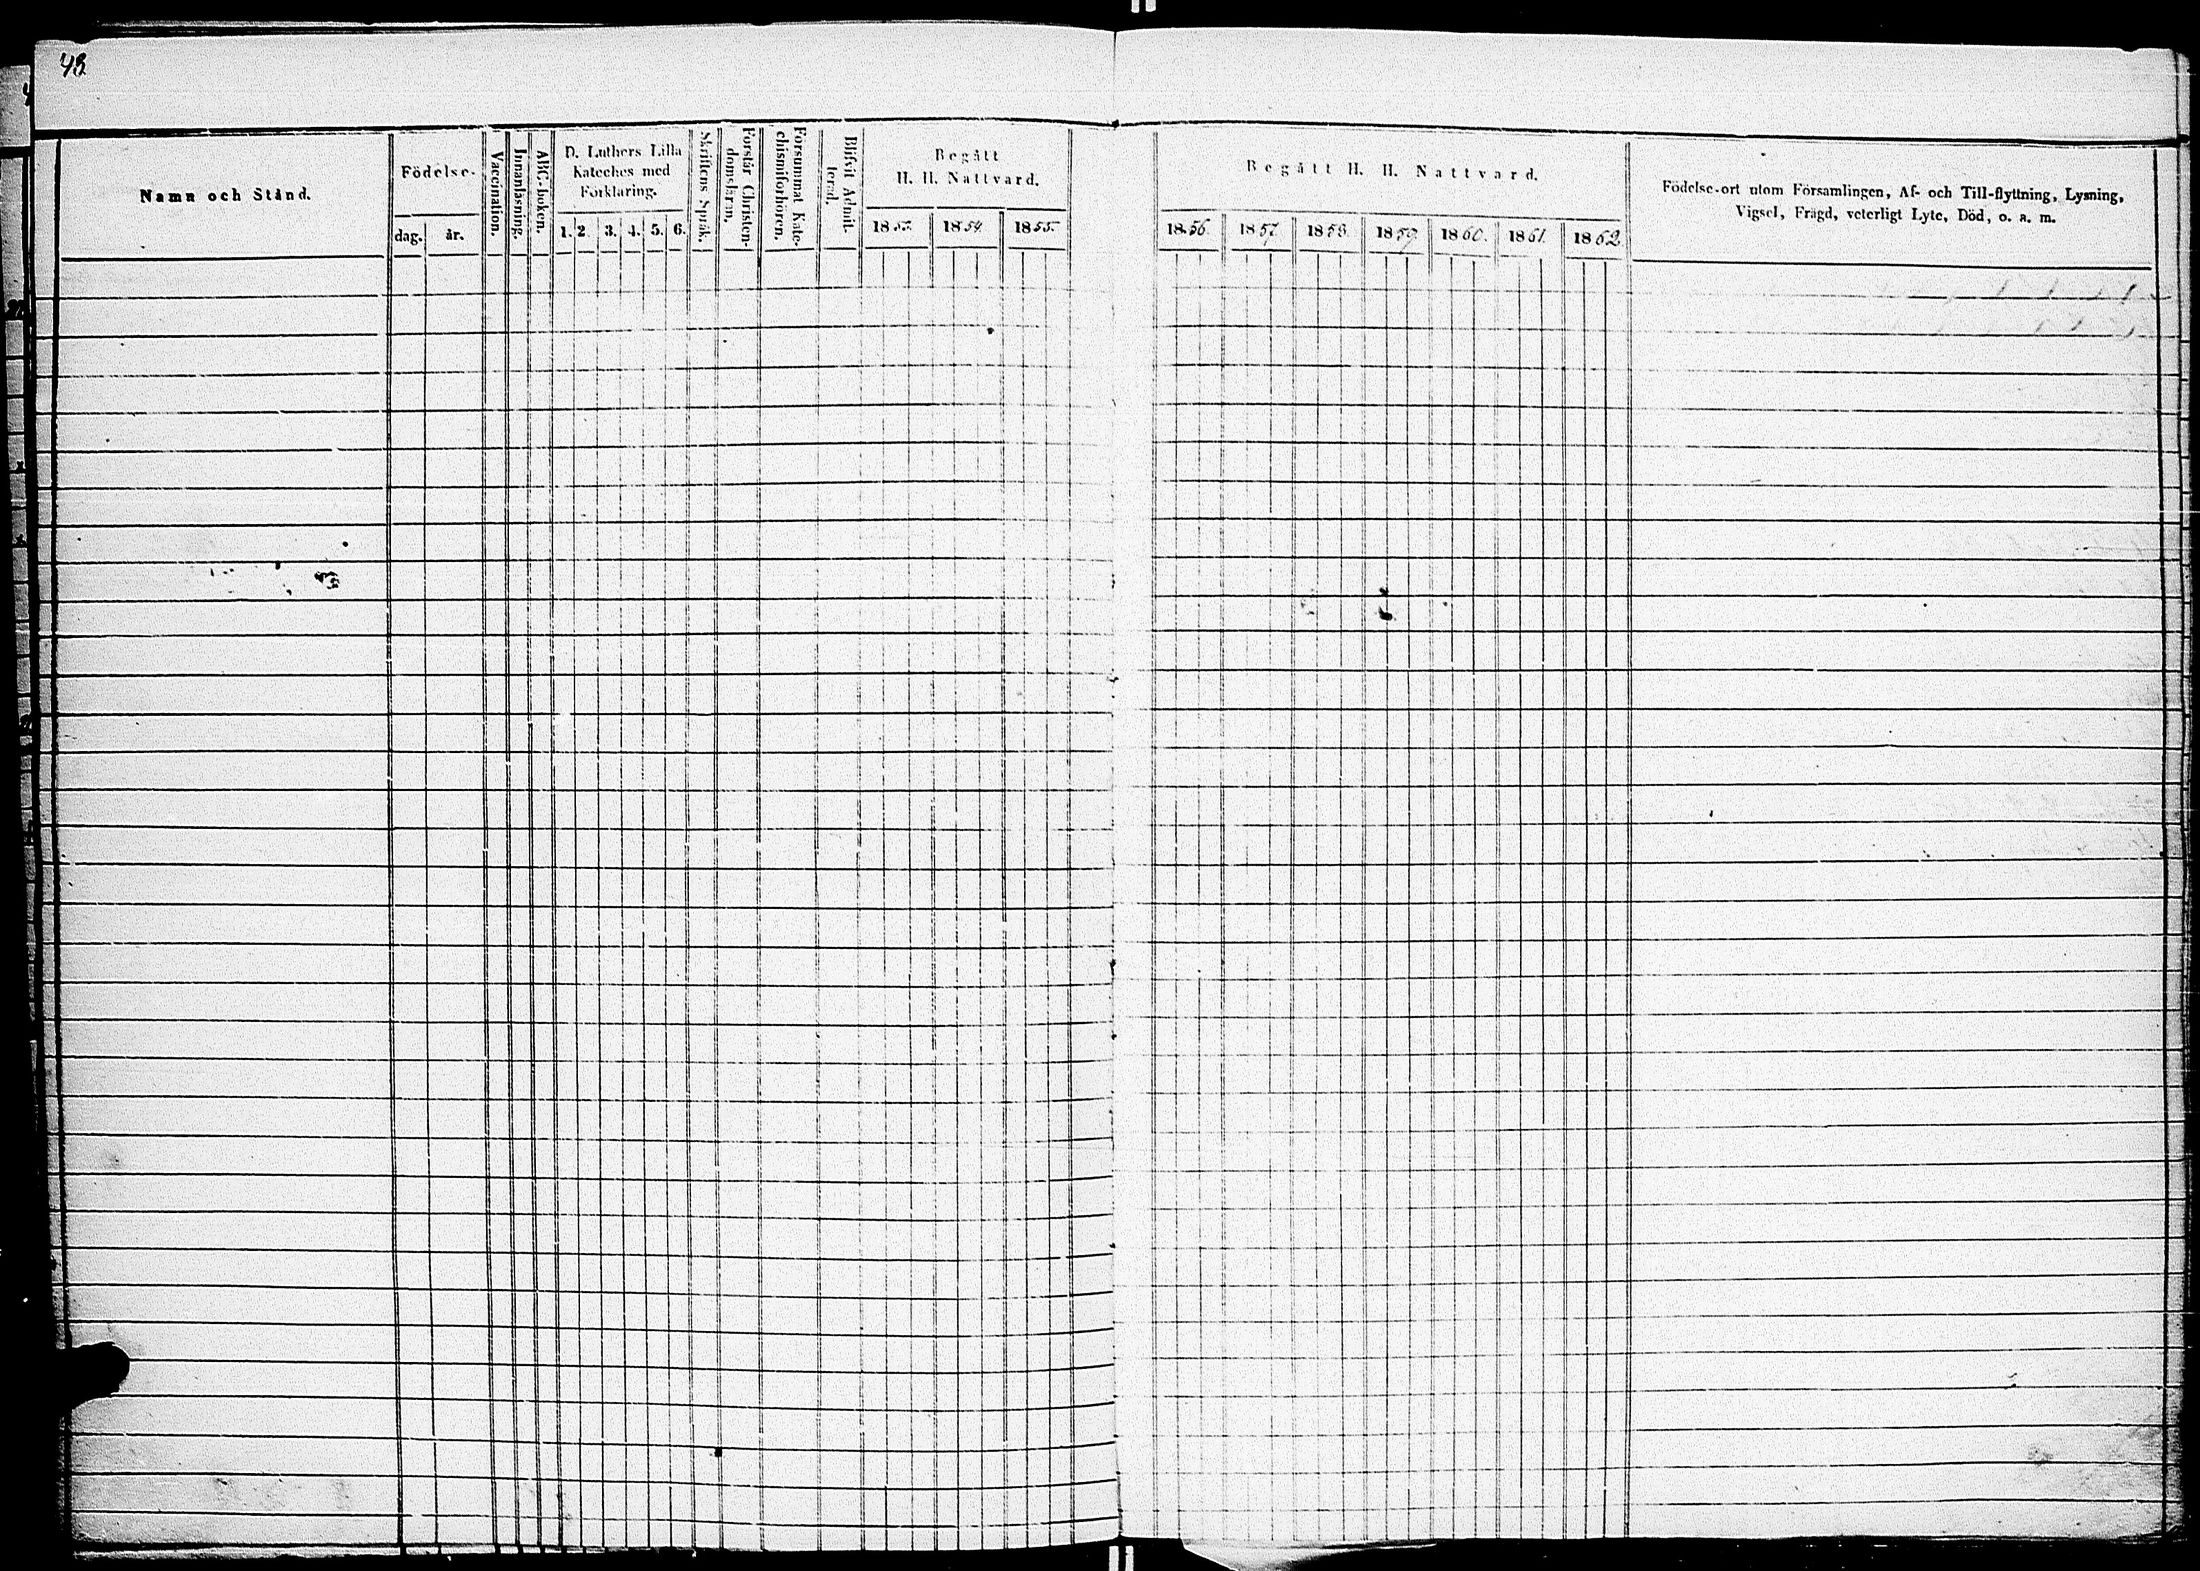 43
Namn och Stånd.
Födelse-
dag. år.
Vaccination.
Innanläsning.
ABC-boken.
D. Luthers Lilla
Kateches med
Förklaring.
1. 2. 3. 4. 5. 6.
Skriftens Språk.
Förstår Christen-
domsläran.
Försummat Kate-
chismiförhören.
Blifvit Admit-
terad.
Begått
H. H. Nattvard.
1853. 1854. 1855.
Begått H. H. Nattvard.
1856. 1857. 1858. 1859. 1860. 1861. 1862
Födelse-ort utom Församlingen, Af- och Till-flyttning, Lysning,
Vigsel, Frägd, veterligt Lyte, Död, o. s. m.